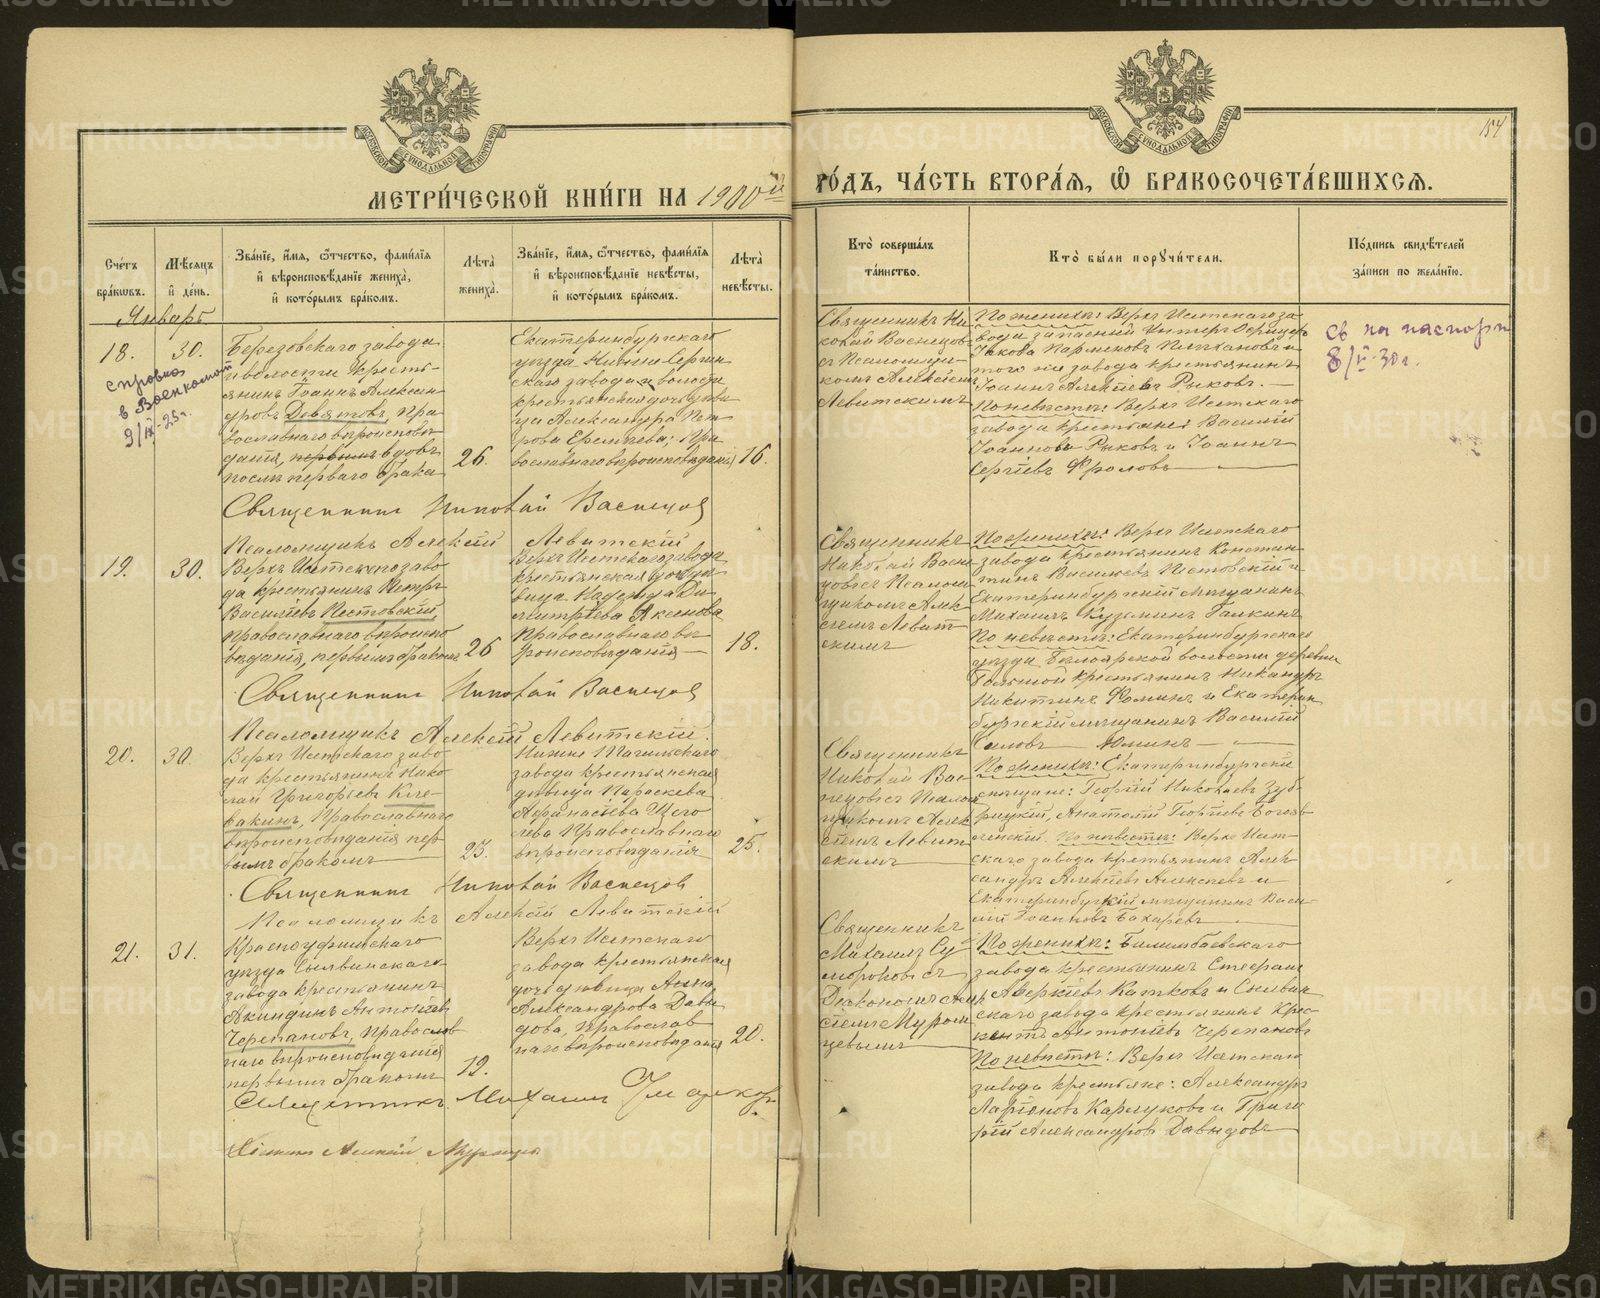 МЕТРИ́ЧЕСКОЙ КНИ́ГИ НА 1900й
РО́ДЪ, ЧА́СТЬ ВТОРА́Я, Ѡ҆ БРАКОСОЧЕТА́ВШИХСЯ.
154
МОСКОВСКОЙ СѴНОДАЛЬНОЙ ТИПОГРАФІИ
МОСКОВСКОЙ СѴНОДАЛЬНОЙ ТИПОГРАФІИ
Сче́тъ
бра́ковъ.
Мѣ́сяцъ
и҆ де́нь.
Зва́ніе, и҆́мя, ѻ҆́тчество, фами́лія
и҆ вѣроисповѣ́даніе жениха̀,
и҆ кото́рымъ бра́комъ.
Лѣ́та̀
жениха̀.
Зва́ніе, и҆́мя, ѻ҆́тчество, фами́лія
и҆ вѣроисповѣ́даніе невѣ́сты,
и҆ кото́рымъ бра́комъ.
Лѣ́та̀
невѣ́сты.
Кто̀ соверша́лъ
та́инство.
Кто̀ бы́ли поручи́тели.
По́дпись свидѣ́телей
за́писи по жела́нію.
Январь
18.
30.
справка
в Военкомат
9/IX-25г.
Березовскаго завода
и волости кресть-
янинъ Іоаннъ Алексан-
дровъ Девятовъ, Пра-
вославнаго вѣроисповѣ-
данія, первымъ вдовъ
послѣ перваго брака
26.
Екатеринбургскаго
уѣзда Нижне Сергин-
скаго завода и волости
крестьянская дочь дѣви-
ца Александра Пет-
рова Еремѣева, Пра-
вославнаго вѣроисповѣданія
16.
Священникъ Ни-
колай Васнецовъ
съ Псаломщи-
комъ Алексѣемъ
Левитскимъ
По женихѣ: Верхъ Исетскаго за-
вода запасный унтеръ офицеръ
Іаковъ Парменовъ Плѣхановъ и
того же завода крестьянинъ
Іоаннъ Алексѣевъ Рыковъ.
По невѣстѣ: Верхъ Исетскаго
завода крестьяне: Василій
Іоанновъ Рыковъ и Іоаннъ
Сергіевъ Фроловъ
Св на паспорт
8/V-30г.
Священникъ Николай Васнецовъ
Псаломщикъ Алексѣй Левитскій
19.
30.
Верхъ Исетскаго заво-
да крестьянинъ Петръ
Василіевъ Пестовскій,
Православнаго вѣроиспо-
вѣданія, первымъ бракомъ
26
Верхъ Исетскаго завода
крестьянская дочь дѣ-
вица Надежда Ди-
митріева Аксенова
Православнаго вѣ-
роисповѣданія
18.
Священникъ
Николай Васне-
цовъ съ Псалом-
щикомъ Алек-
сѣемъ Левит-
скимъ
По женихѣ: Верхъ Исетскаго
завода крестьянинъ Констан-
тинъ Василіевъ Пестовскій и
Екатеринбургскій мѣщанинъ
Михаилъ Кузьминъ Галкинъ
По невѣстѣ: Екатеринбургскаго
уѣзда Бѣлоярской волости деревни
Большой крестьянинъ Никандръ
Никитинъ Фоминъ и Екатерин-
бургскій мѣщанинъ Василій
Силовъ Юминъ
Священникъ Николай Васнецовъ
Псаломщикъ Алексѣй Левитскій.
20.
30.
Верхъ Исетскаго заво-
да крестьянинъ Нико-
лай Григорьевъ Кле-
вакинъ, Православнаго
вѣроисповѣданія пер-
вымъ бракомъ
23.
Нижне Тагильскаго
завода крестьянская
дѣвица Параскева
Афанасіева Щего-
лева Православнаго
вѣроисповѣданія
25.
Священникъ
Николай Вас-
нецовъ съ Псалом-
щикомъ Алек-
сѣемъ Левит-
скимъ
По женихѣ: Екатеринбургскіе
мѣщане: Георгій Николаевъ Зуб-
рицкій, Анатолій Георгіевъ Богояв-
ленскій. По невѣстѣ: Верхъ Исет-
скаго завода крестьянинъ Алек-
сандръ Алексѣевъ Алексѣевъ и
Екатеринбургскій мѣщанинъ Васи-
лій Іоанновъ Бахаревъ
Священникъ Николай Васнецовъ
Псаломщикъ Алексѣй Левитскій
21.
31.
Красноуфимскаго
уѣзда Сылвинскаго
завода крестьянинъ
Акиндинъ Антоніевъ
Черепановъ, Православ-
наго вѣроисповѣданія
первымъ бракомъ
19.
Верхъ Исетскаго
завода крестьянская
дочь дѣвица Анна
Александрова Давы-
дова, Православ-
наго вѣроисповѣданія
20.
Священникъ
Михаилъ Су-
мороковъ съ
Діакономъ Алек-
сѣемъ Муром-
цевымъ
По женихѣ: Билимбаевскаго
завода крестьянинъ Стефанъ
Аверкіевъ Катковъ и Сылвин-
скаго завода крестьянинъ Крес-
кентъ Антоніевъ Черепановъ
По невѣстѣ: Верхъ Исетскаго
завода крестьяне: Александръ
Ларіоновъ Карлуковъ и Григо-
рій Александровъ Давыдовъ
Священникъ Михаилъ
Діаконъ Алексѣй Муромцевъ
METRIKI.GASO-URAL.RU